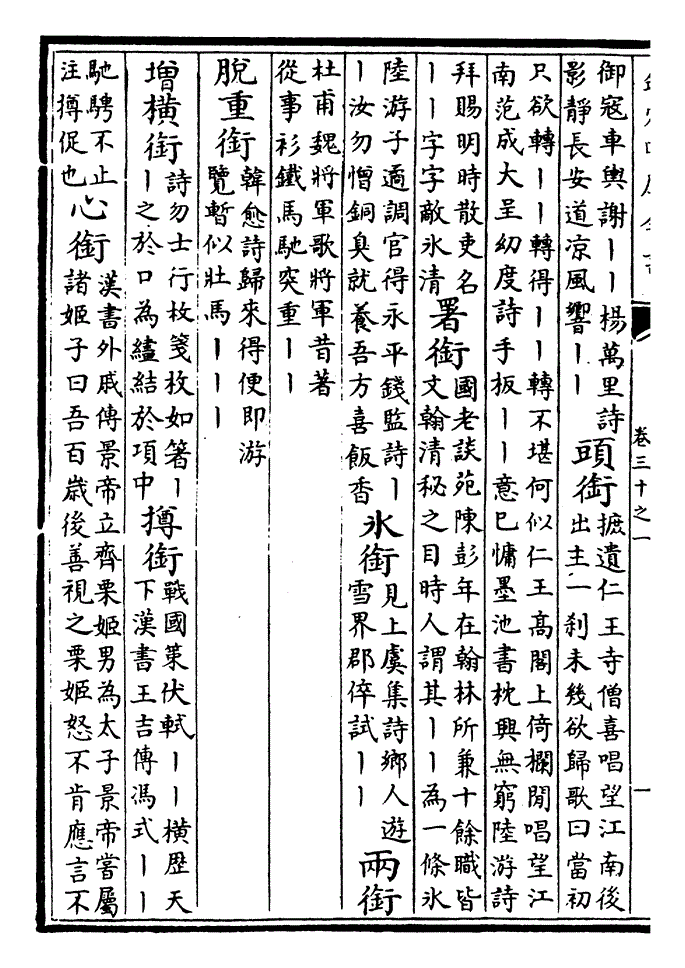 卷三十之一
一
御冦車輿謝｜｜楊萬里詩
影靜長安道凉風響｜｜
頭銜
摭遺仁王寺僧喜唱望江南後
出主一刹未幾欲歸歌曰當初
只欲轉｜｜轉得｜｜轉不堪何似仁王高閣上倚欄閒唱望江
南范成大呈幼度詩手板｜｜意已慵墨池書枕興無窮陸游詩
拜賜明時散吏名
｜｜字字敵氷清
署銜
國老談苑陳彭年在翰林所兼十餘職皆
文翰清秘之目時人謂其｜｜為一條氷
陸游子遹調官得永平錢監詩｜
｜汝勿憎銅臭就養吾方喜飯香
氷銜
見上虞集詩鄉人遊
雪界郡倅試｜｜
兩銜
杜甫魏將軍歌將軍昔著
從事衫鐵馬馳突重｜｜
脫重銜
韓愈詩歸來得便即游
覽暫似壯馬｜｜｜
增橫銜
詩勿士行枚箋枚如箸｜
｜之於口為繣結於項中
撙銜
戰國策伏軾｜｜橫歴天
下漢書王吉傳馮式｜｜
馳騁不止
注撙促也
心銜
漢書外戚傳景帝立齊栗姬男為太子景帝嘗屬
諸姬子曰吾百歲後善視之栗姬怒不肯應言不